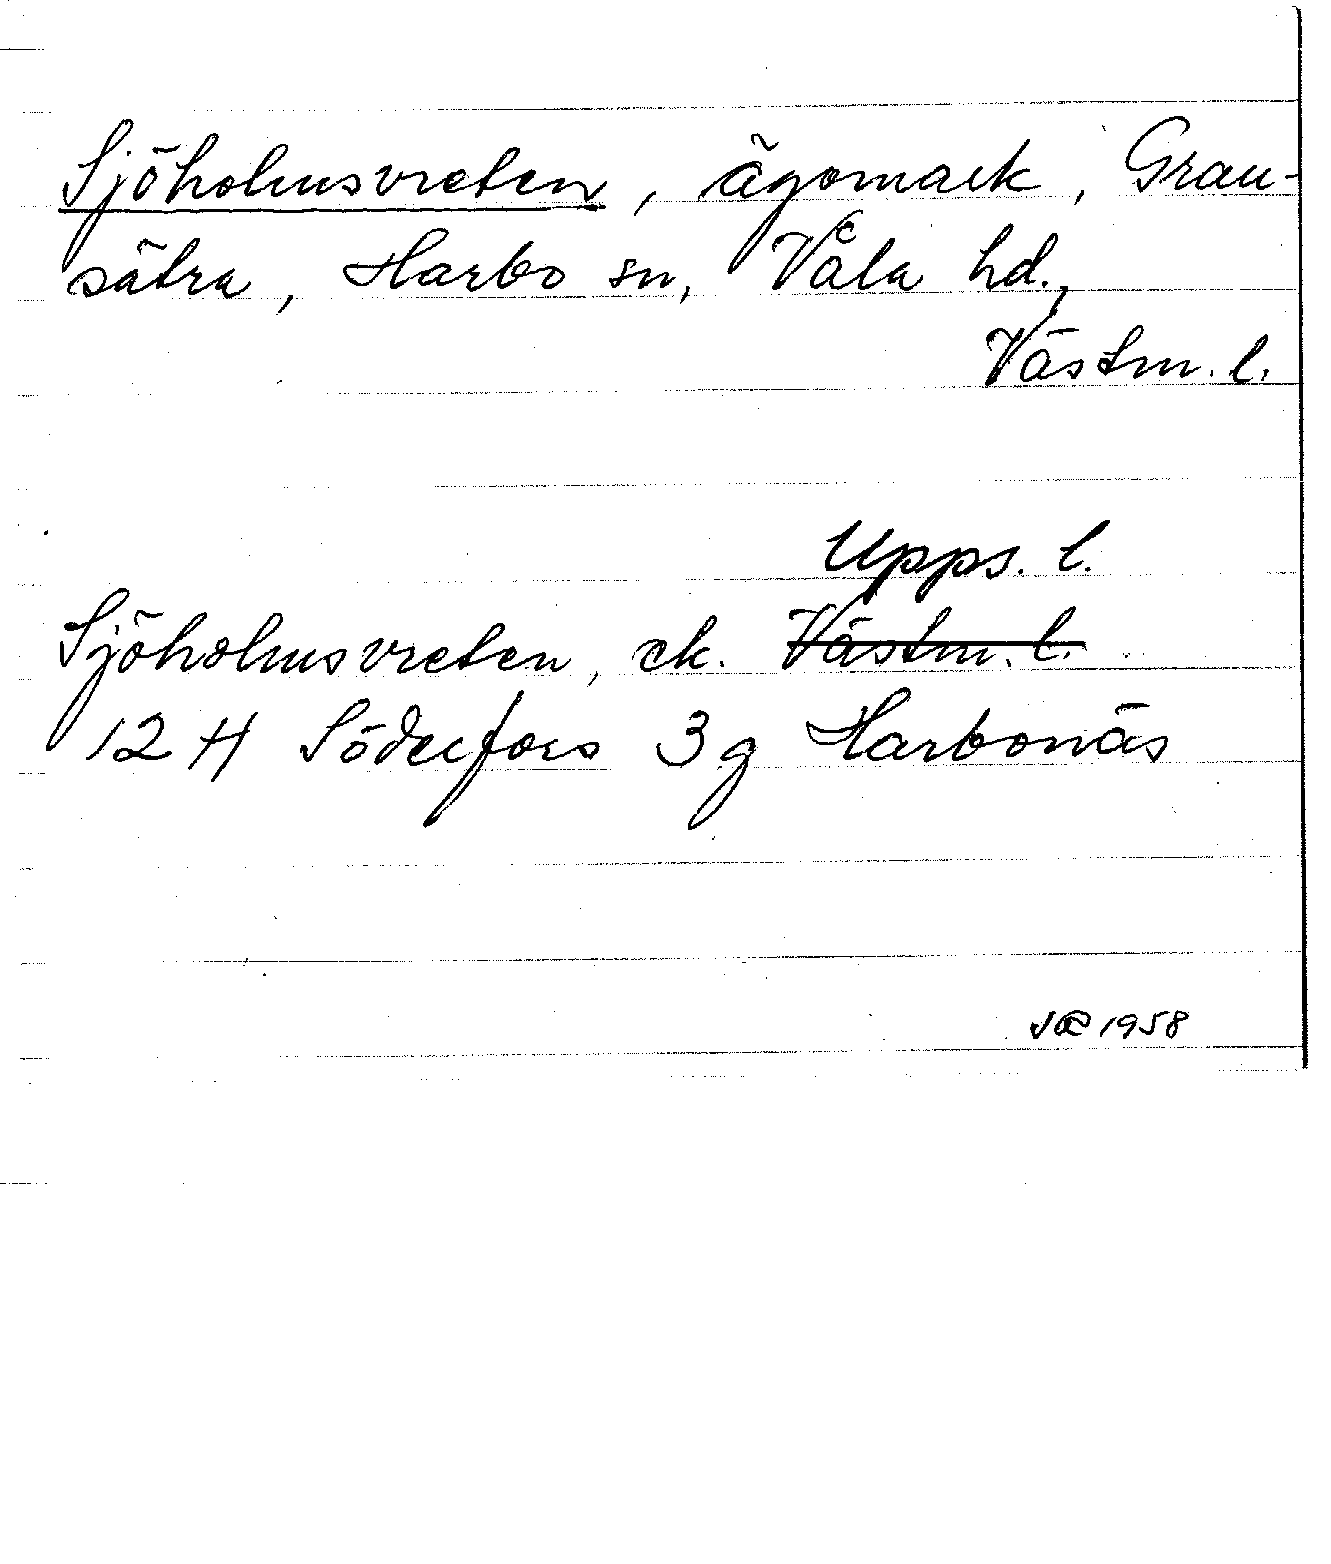 Sjöholmsvreten, ägomark, Gran-
sätra, Harbo sn, Våla hd.,
Västm. l.
Upps. l.
Sjöholmsvreten, ek. Västm. l.
12 H Söderfors 3 g Harbonäs
1958